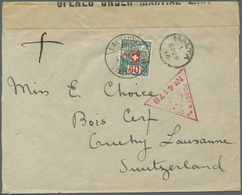 OPENED UNDER MARTIAL LAW
MALTA
50
Nº 4178
Miss E. Choice
Bois Cerf
Ouchy Lausanne
Switzerland